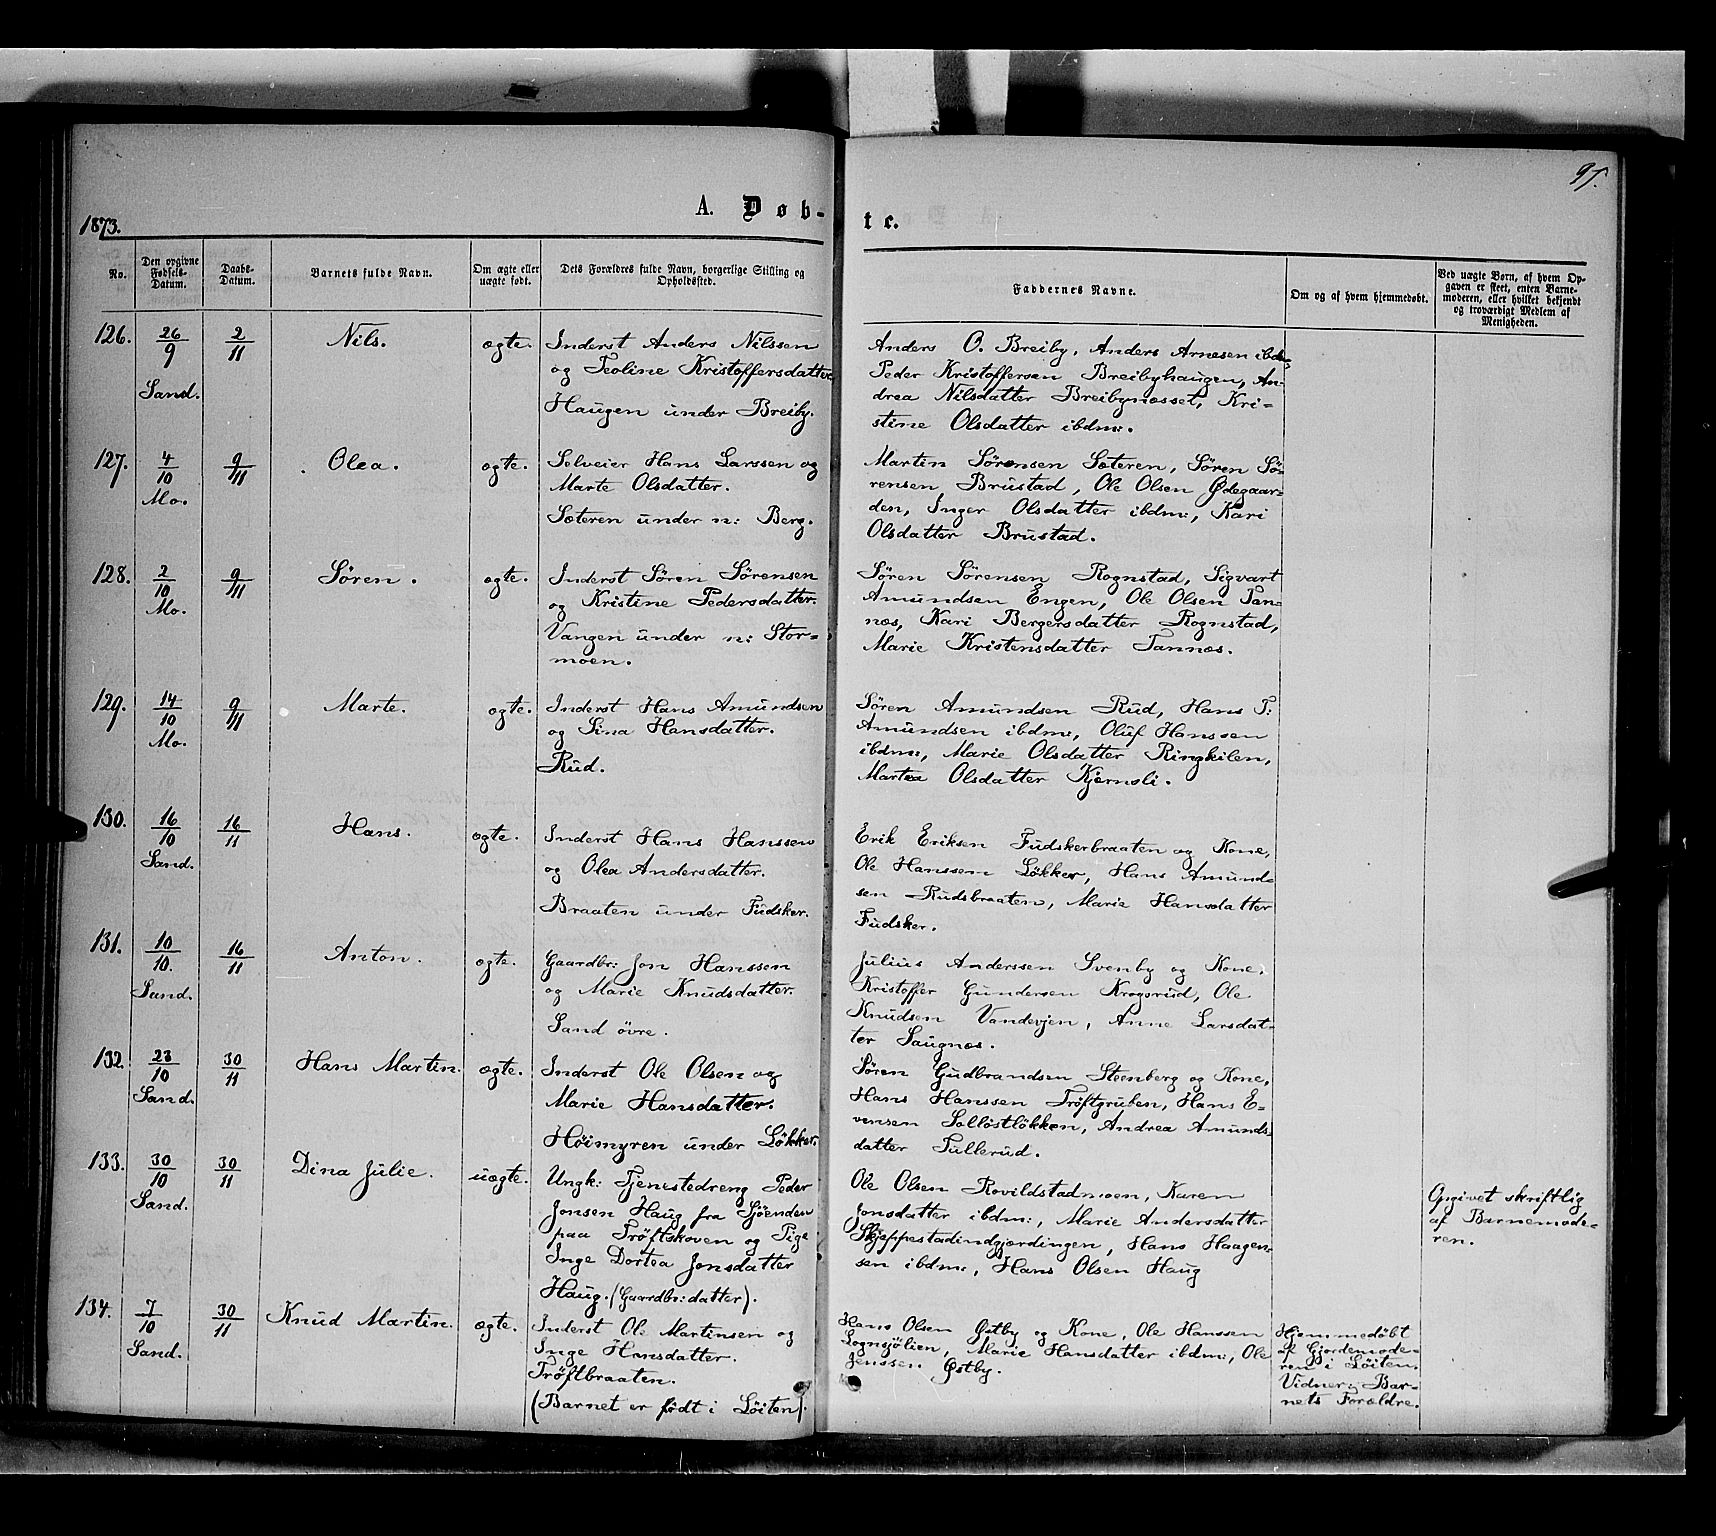 97.
1873.
A. Døb-
te.
No.
Den opgivne Fødsels-Datum.
Daabs-Datum.
Barnets fulde Navn.
Om ægte eller uægte født.
Dets Forældres fulde Navn, borgerlige Stilling og Opholdssted.
Faddernes Navne.
Om og af hvem hjemmedøbt.
Ved uægte Børn, af hvem Opgaven er skeet, enten Barnemoderen, eller hvilket bekjendt og troværdigt Medlem af Menigheden.
126. 26/9 Sand. 2/11 Nils. ægte.
Inderst Anders Nilssen
og Teoline Kristoffersdatter
Haugen under Breiby.
Anders O. Breiby, Anders Arnesen ibdm,
Peder Kristoffersen Breibyhaugen, An-
drea Nilsdatter Breibynæsset, Kri-
stine Olsdatter ibdm:.
127. 4/10 Mo. 9/11 Olea. ægte.
Selveier Hans Larssen og
Marte Olsdatter.
Sæteren under n: Berg.
Martin Sørensen Sæteren, Søren Sø-
rensen Brustad, Ole Olsen Ødegaar-
den, Inger Olsdatter ibdm:, Kari
Olsdatter Brustad.
128. 2/10 Mo. 9/11 Søren. ægte.
Inderst Søren Sørensen
og Kristine Pedersdatter.
Vangen under n: Stor-
moen.
Søren Sørensen Rognstad, Sigvart
Amundsen Engen, Ole Olsen Tan-
næs, Kari Bergersdatter Rognstad,
Marie Kristensdatter Tannæs.
129. 14/10 Mo. 9/11 Marte. ægte.
Inderst Hans Amundsen
og Sina Hansdatter.
Rud.
Søren Amundsen Rud, Hans T:
Amundsen ibdm:, Oluf Hanssen
ibdm:, Marie Olsdatter Ringkilen,
Martea Olsdatter Kjernsli.
130. 16/10 Sand. 16/11 Hans. ægte.
Inderst Hans Hanssen
og Olea Andersdatter.
Braaten under Fudsker.
Erik Eriksen Fudskerbraaten og Kone,
Ole Hanssen Løkker, Hans Amund-
sen Rudsbraaten, Marie Hansdatter
Fudsker.
131. 10/10. Sand. 16/11 Anton. ægte.
Gaardbr: Jon Hanssen
og Marie Knudsdatter.
Sand øvre.
Julius Anderssen Svenby og Kone,
Kristoffer Gundersen Krogsrud, Ole
Knudsen Vandevjen, Anne Larsdat-
ter Saugnæs.
132. 23/10 Sand. 30/11 Hans Martin. ægte.
Inderst Ole Olsen og
Marie Hansdatter.
Høimyren under Løkker.
Søren Gudbrandsen Steenberg og Kone,
Hans Hanssen Trøftgruben, Hans E-
vensen Solløstløkken, Andrea Amunds-
datter Tullerud.
133. 30/10 Sand. 30/11 Dina Julie. uægte.
Ungk: Tjenestedreng Peder
Jonsen Haug fra Sjøenden
paa Trøftskoven og Pige
Inge Dortea Jonsdatter
Haug. (Gaardbr: datter).
Ole Olsen Rovildstadmoen, Karen
Jonsdatter ibdm:, Marie Andersdatter
Skjeppestadindgjærdingen, Hans Haagen-
sen ibdm:, Hans Olsen Haug
Opgivet skriftlig
af Barnemode-
ren.
134. 7/10 Sand. 30/11 Knud Martin. ægte.
Inderst Ole Martinsen og
Inge Hansdatter.
Trøftbraaten.
(Barnet er født i Løiten).
Hans Olsen Østby og Kone, Ole Hanssen
Marie Hansdatter ibdm:, Ole
Jenssen Østby.
Hjemmedøbt
af Gjordemode-
ren i Løiten.
Vidner: Bar-
nets Forældre.